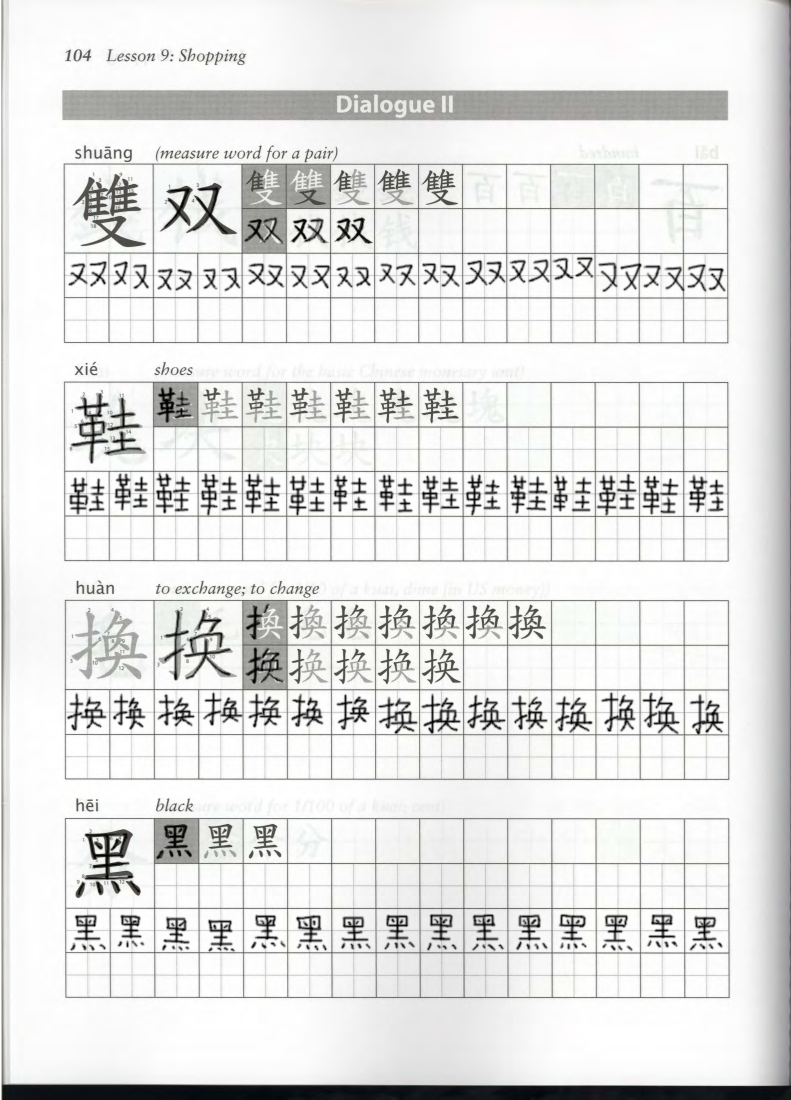 104 Lesson 9: Shopping
Dialogue II
shuāng (measure word for a pair)
雙 双 雙 雙 雙 雙 雙
双 双 双
双 双 双 双 双 双 双 双 双 双 双 双 双 双 双
xié shoes
鞋 鞋 鞋 鞋 鞋 鞋 鞋 鞋
鞋 鞋 鞋 鞋 鞋 鞋 鞋 鞋 鞋 鞋 鞋 鞋 鞋 鞋 鞋
huàn to exchange; to change
換 换 換 換 換 換 換 換 換
换 换 换 换 换
换 换 换 换 换 换 换 换 换 换 换 换 换 换 换
hēi black
黑 黑 黑 黑
黑 黑 黑 黑 黑 黑 黑 黑 黑 黑 黑 黑 黑 黑 黑